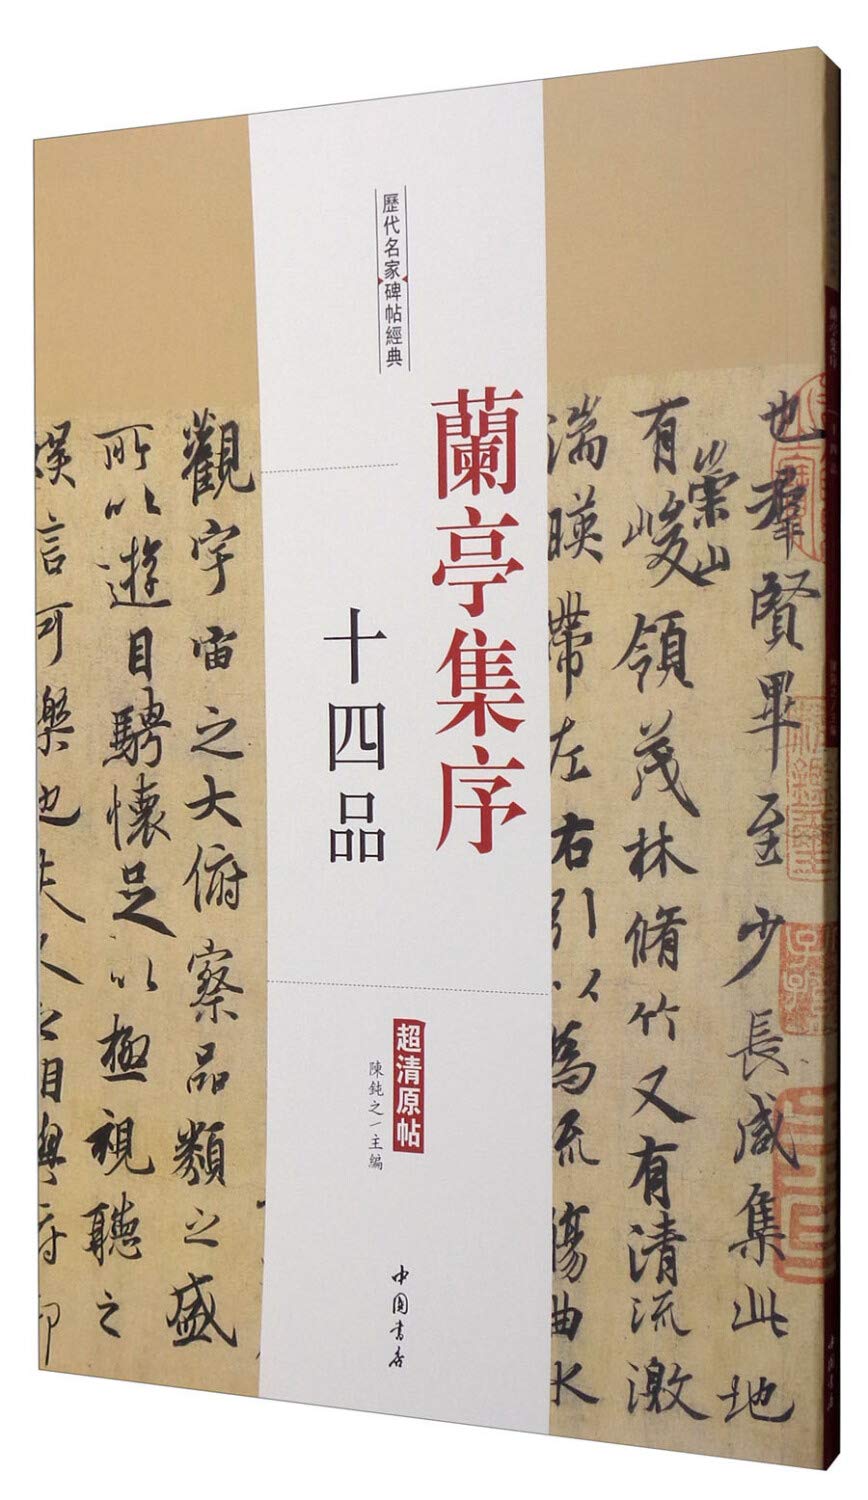 歷代名家碑帖經典
蘭亭集序
十四品
超清原帖
陳鈍之/主編
中国書店
也羣賢畢至少長咸集此地
有崇山峻領茂林脩竹又有清流激
湍暎帶左右引以為流觴曲水
觀宇宙之大俯察品類之盛
所以遊目騁懷足以極視聽之
娛言可樂也夫人之相與俯仰
蘭亭集序
十四品
陳鈍之/主編
中国書店